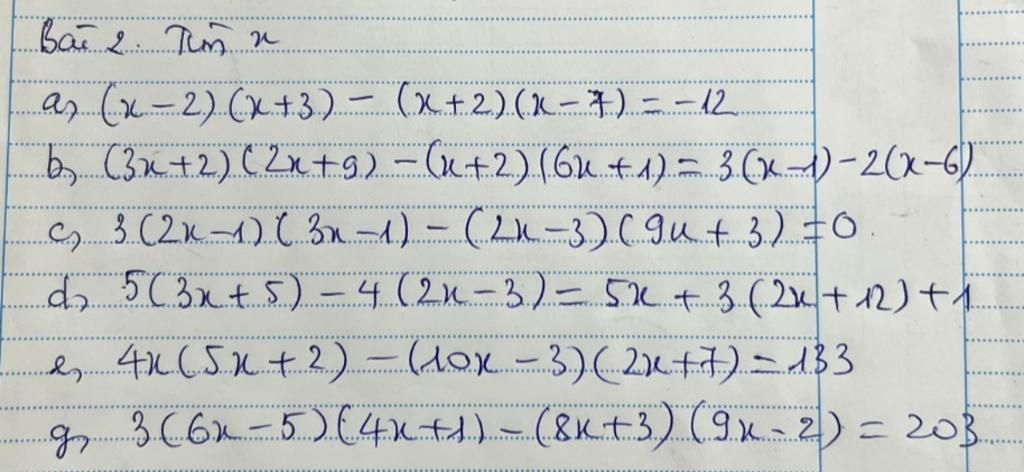 Bài 2. Tìm x
a, (x-2)(x+3) - (x+2)(x-7) = -12
b, (3x+2)(2x+9) - (x+2)(6x+1) = 3(x-1) - 2(x-6)
c, 3(2x-1)(3x-1) - (2x-3)(9x+3) = 0.
d, 5(3x+5) - 4(2x-3) = 5x + 3(2x+12) + 1
e, 4x(5x+2) - (10x-3)(2x+7) = 133
g, 3(6x-5)(4x+1) - (8x+3)(9x-2) = 203